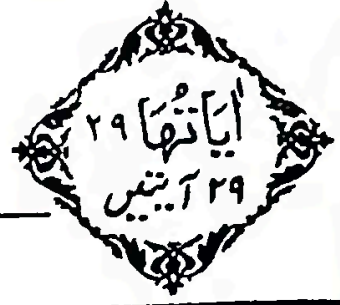 اٰيَاتُهَا ٢٩
٢٩ آیتیں